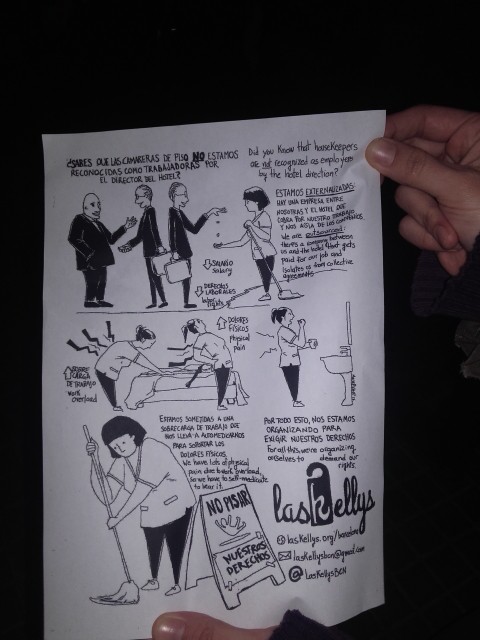 ¿SABES QUE LAS CAMARERAS DE PISO NO ESTAMOS
RECONOCIDAS COMO TRABAJADORAS POR
EL DIRECTOR DEL HOTEL?
Did you know that housekeepers
are not recognized as employees
by the hotel direction?
ESTAMOS EXTERNALIZADAS:
HAY UNA EMPRESA ENTRE
NOSOTRAS Y EL HOTEL QUE
COBRA POR NUESTRO TRABAJO
Y NOS AISLA DE LOS CONVENIOS.
We are outsourced:
there's a company between
us and the hotel that gets
paid for our job and
isolates us from collective
agreements
SALARIO
salary
DERECHOS
LABORALES
labor
rights
SOBRE
CARGA
DE TRABAJO
work
overload
DOLORES
FÍSICOS
physical
pain
ESTAMOS SOMETIDAS A UNA
SOBRECARGA DE TRABAJO QUE
NOS LLEVA A AUTOMEDICARNOS
PARA SOPORTAR LOS
DOLORES FÍSICOS.
We have lots of physical
pain due to work overload,
so we have to self-medicate
to bear it.
POR TODO ESTO, NOS ESTAMOS
ORGANIZANDO PARA
EXIGIR NUESTROS DERECHOS
For all this, we're organizing
ourselves to demand our
rights.
NO PISAR
NUESTROS
DERECHOS
las kellys
laskellys.org/barcelona
laskellysbcn@gmail.com
@ LasKellysBCN